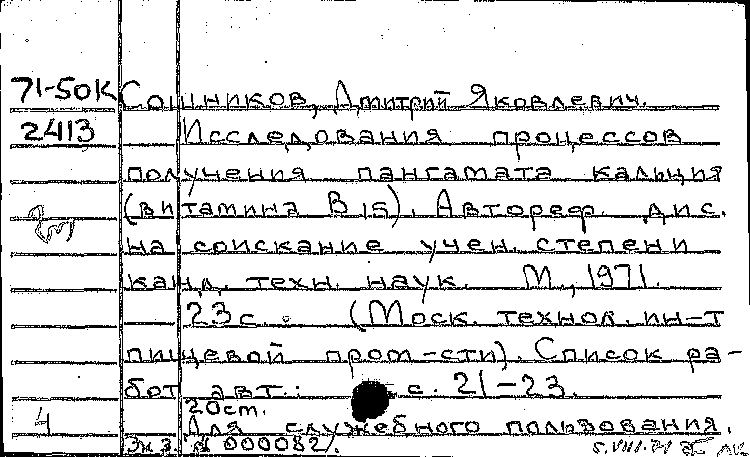 71-50К Сошников, Дмитрий Яковлевич.
2413 Исследования процессов
получения пангамата кальция
(витамина B15). Автореф. дис.
на соискание учен. степени
канд. техн. наук. М., 1971.
23 с. (Моск. технол. ин-т
пищевой пром-сти). Список ра-
бот авт.: с. 21-23.
20 ст.
4 Для служебного пользования.
Экз. № 000082.
5.VIII.71